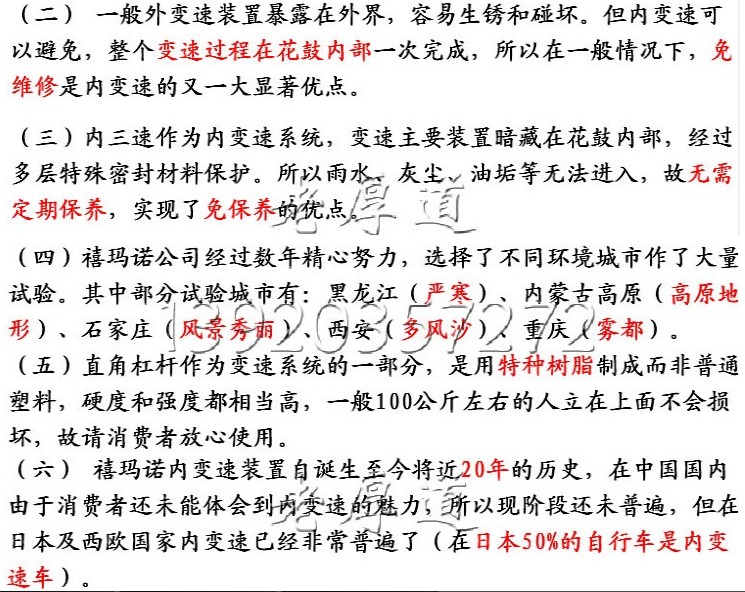 （二） 一般外变速装置暴露在外界，容易生锈和碰坏。但内变速可
以避免，整个变速过程在花鼓内部一次完成，所以在一般情况下，免
维修是内变速的又一大显著优点。
（三）内三速作为内变速系统，变速主要装置暗藏在花鼓内部，经过
多层特殊密封材料保护。所以雨水、灰尘、油垢等无法进入，故无需
定期保养，实现了免保养的优点。
老厚道
（四）禧玛诺公司经过数年精心努力，选择了不同环境城市作了大量
试验。其中部分试验城市有：黑龙江（严寒）、内蒙古高原（高原地
形）、石家庄（风景秀丽）、西安（多风沙）、重庆（雾都）。
13920357272
（五）直角杠杆作为变速系统的一部分，是用特种树脂制成而非普通
塑料，硬度和强度都相当高，一般100公斤左右的人立在上面不会损
坏，故请消费者放心使用。
（六） 禧玛诺内变速装置自诞生至今将近20年的历史，在中国国内
由于消费者还未能体会到内变速的魅力，所以现阶段还未普遍，但在
老厚道
日本及西欧国家内变速已经非常普遍了（在日本50%的自行车是内变
速车）。